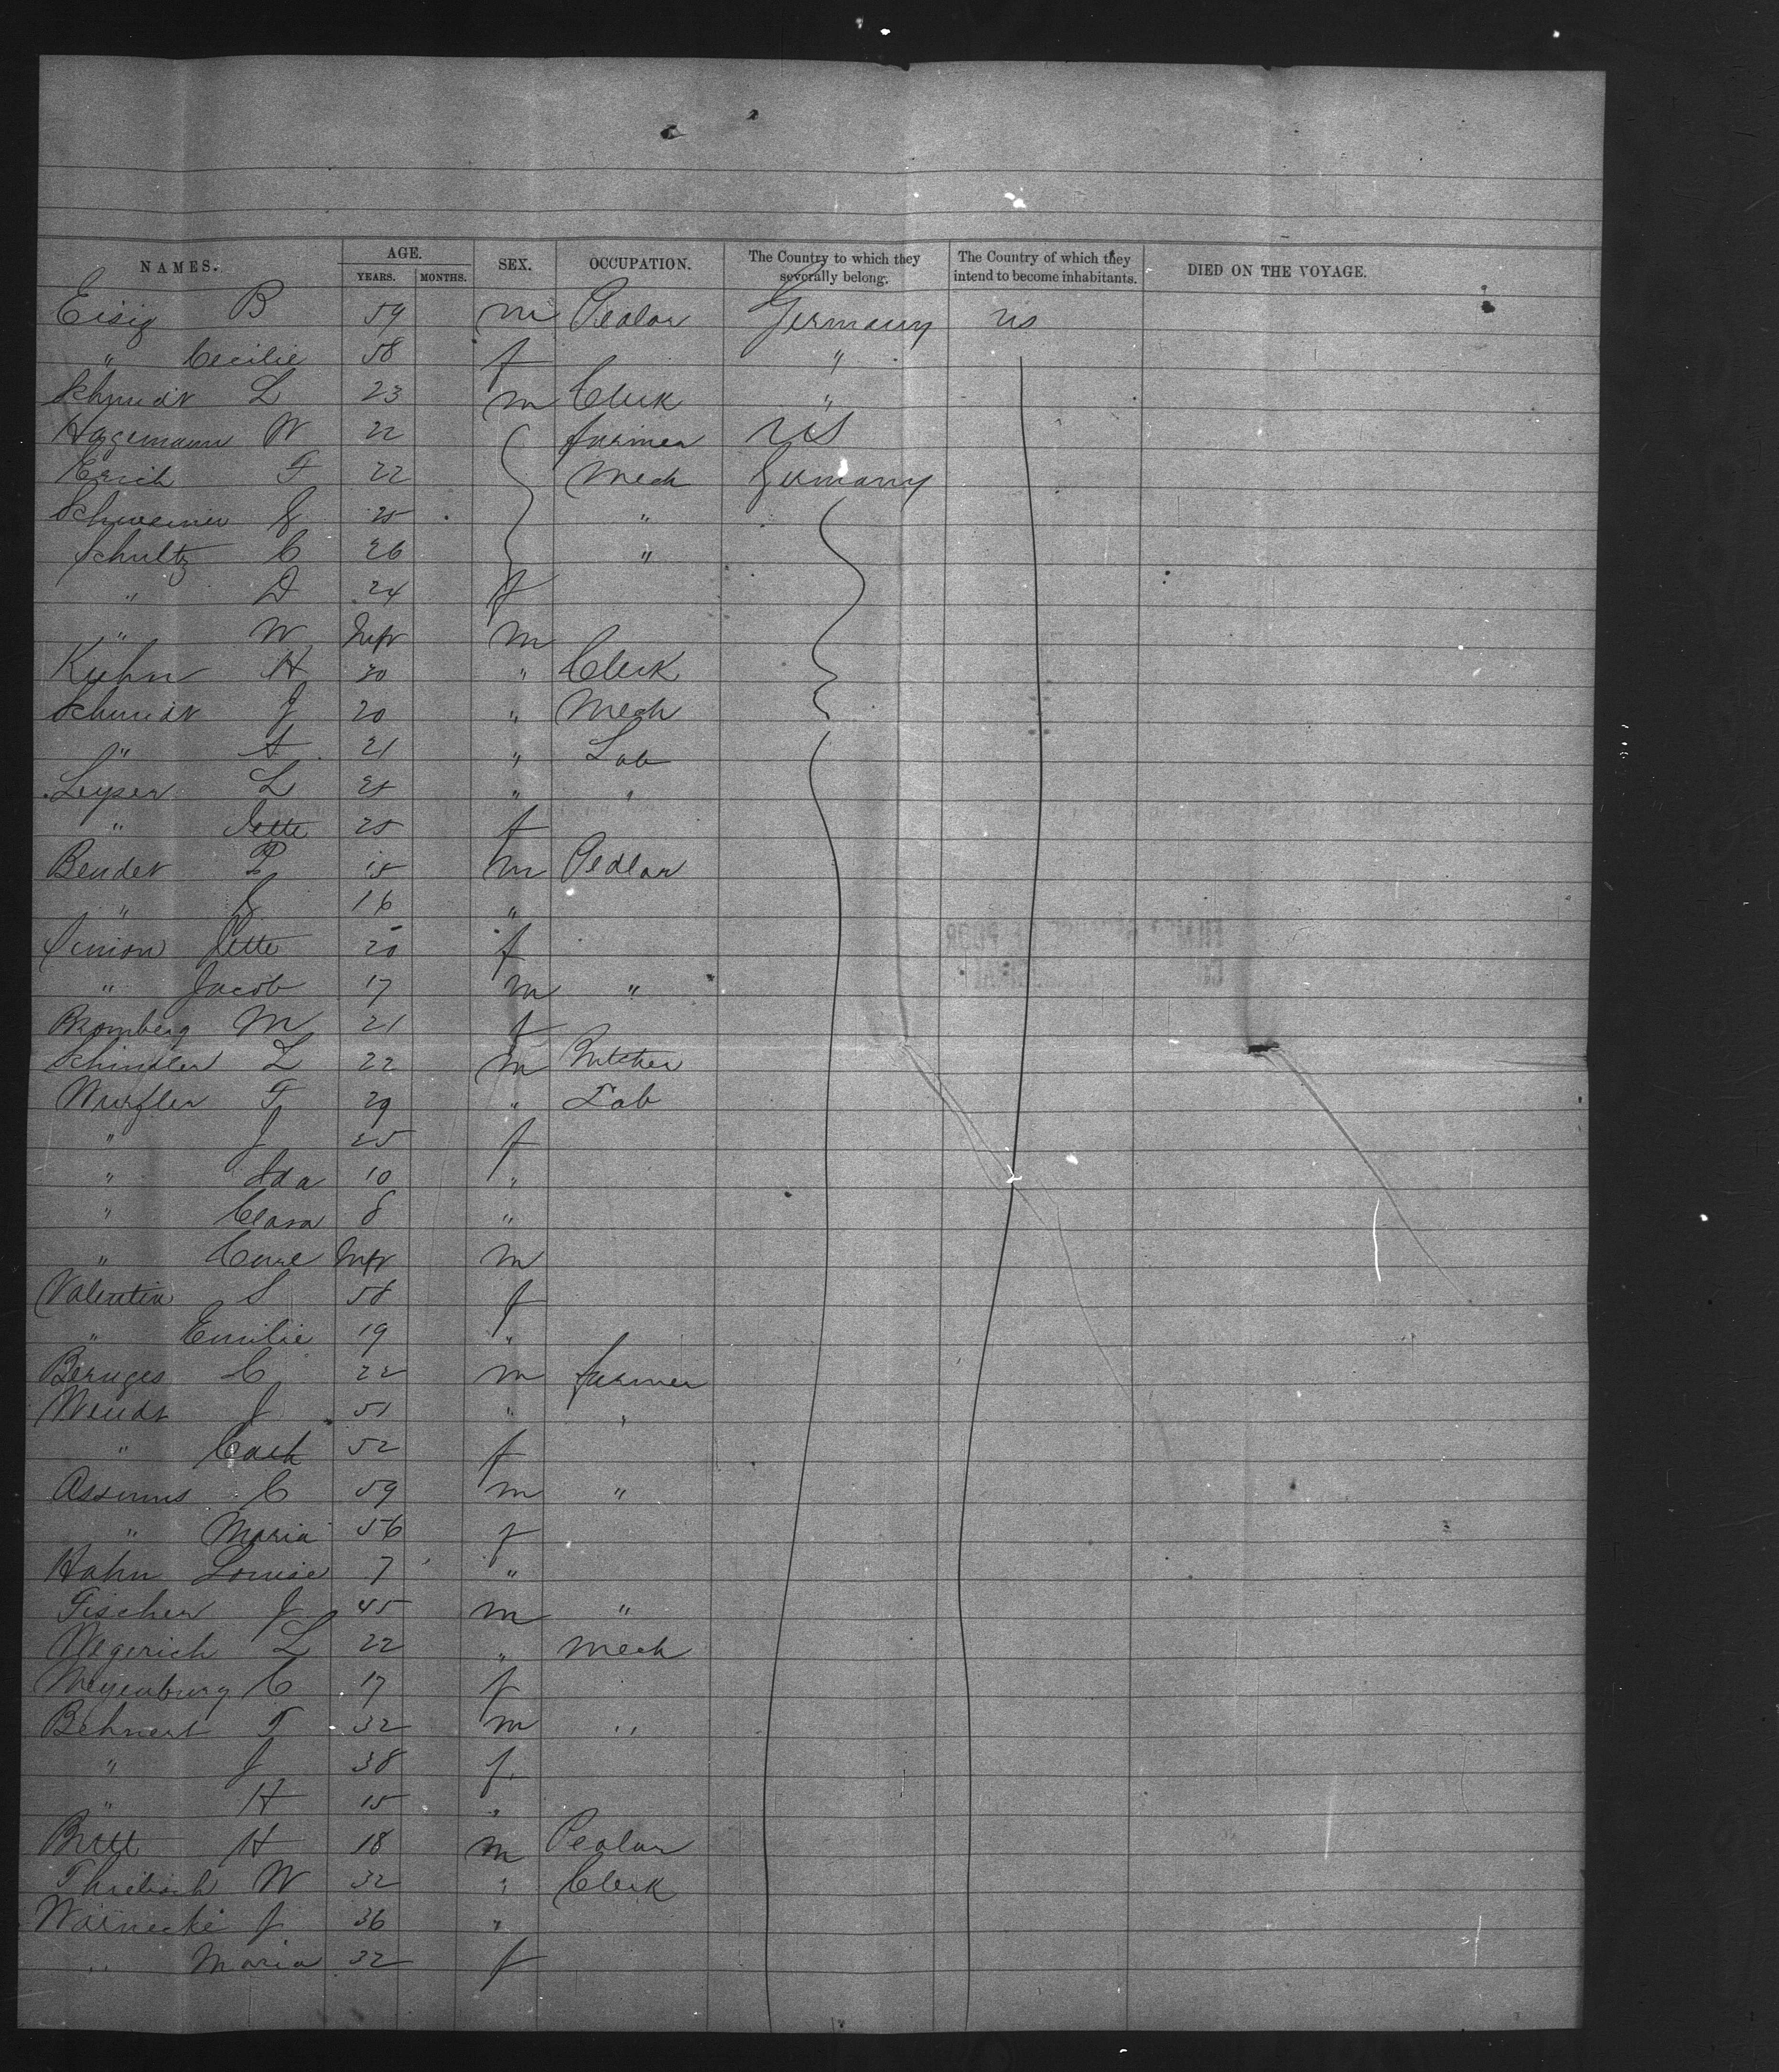 NAMES. AGE. YEARS. MONTHS. SEX. OCCUPATION. The Country to which they severally belong. The Country of which they intend to become inhabitants. DIED ON THE VOYAGE.
Eisig B 59 m Pedlar Germany US
" Cecilie 58 f "
Schmidt L 23 m Clerk "
Hagemann W 22 farmer US
Erich F 22 Mech Germany
25 "
Schultz C 26 "
" D 24 f
" W Inft m
Kuhn H 30 " Clerk
Schmidt J 20 " Mech
" A 21 " Lab
Leyser L 25 " "
" Jette 25 f
Bender P 15 m Pedlar
" 16 "
Simon Jette 20 f
" Jacob 17 m "
Bromberg M 21 f
Schindler L 22 m Butcher
Wurfler F 29 " Lab
" J 25 f
" Ida 10 "
" Clara 8 "
" Inft m
Valentin S 58 f
" Emilie 19 "
Beruges C 22 m farmer
Wendt J 51 " "
" Cath 52 f
Assmus C 59 m "
" Maria 56 f
Hahn Louise 7 "
Fischer J 45 m "
Wegerich L 22 " Mech
Meyenburg C 17 f
Behnert F 32 m "
" J 38 f
" H 15 "
Britt H 18 m Pedlar
W 32 " Clerk
Warnecke J 36 "
" Maria 32 f